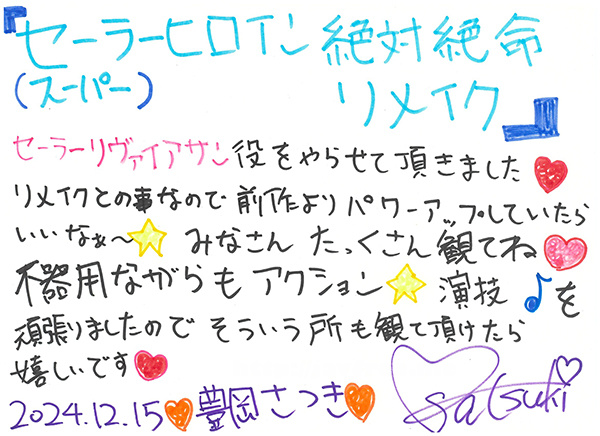 『セーラーヒロイン 絶対絶命
(スーパー) リメイク』
セーラーリヴァイアサン役をやらせて頂きました♥
リメイクとの事なので 前作よりパワーアップしていたら
いいなぁ～⭐ みなさん たっくさん観てね♥
不器用ながらも アクション⭐ 演技♪を
頑張りましたので そういう所も観て頂けたら
嬉しいです♥
2024.12.15♥豊岡さつき♥ Satsuki♡